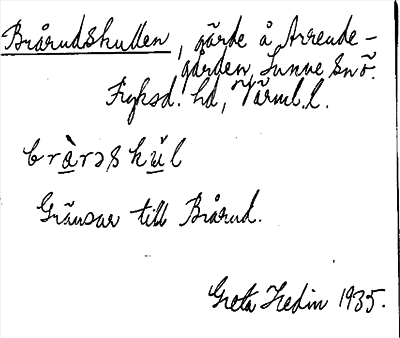 Brårudskullen, gärde å Arrende-
gården, Sunne snö.
Fryksd. hd, Värml. l.
brὰrəs kŭl
Gränsar till Brårud.
Greta Hedin 1935.